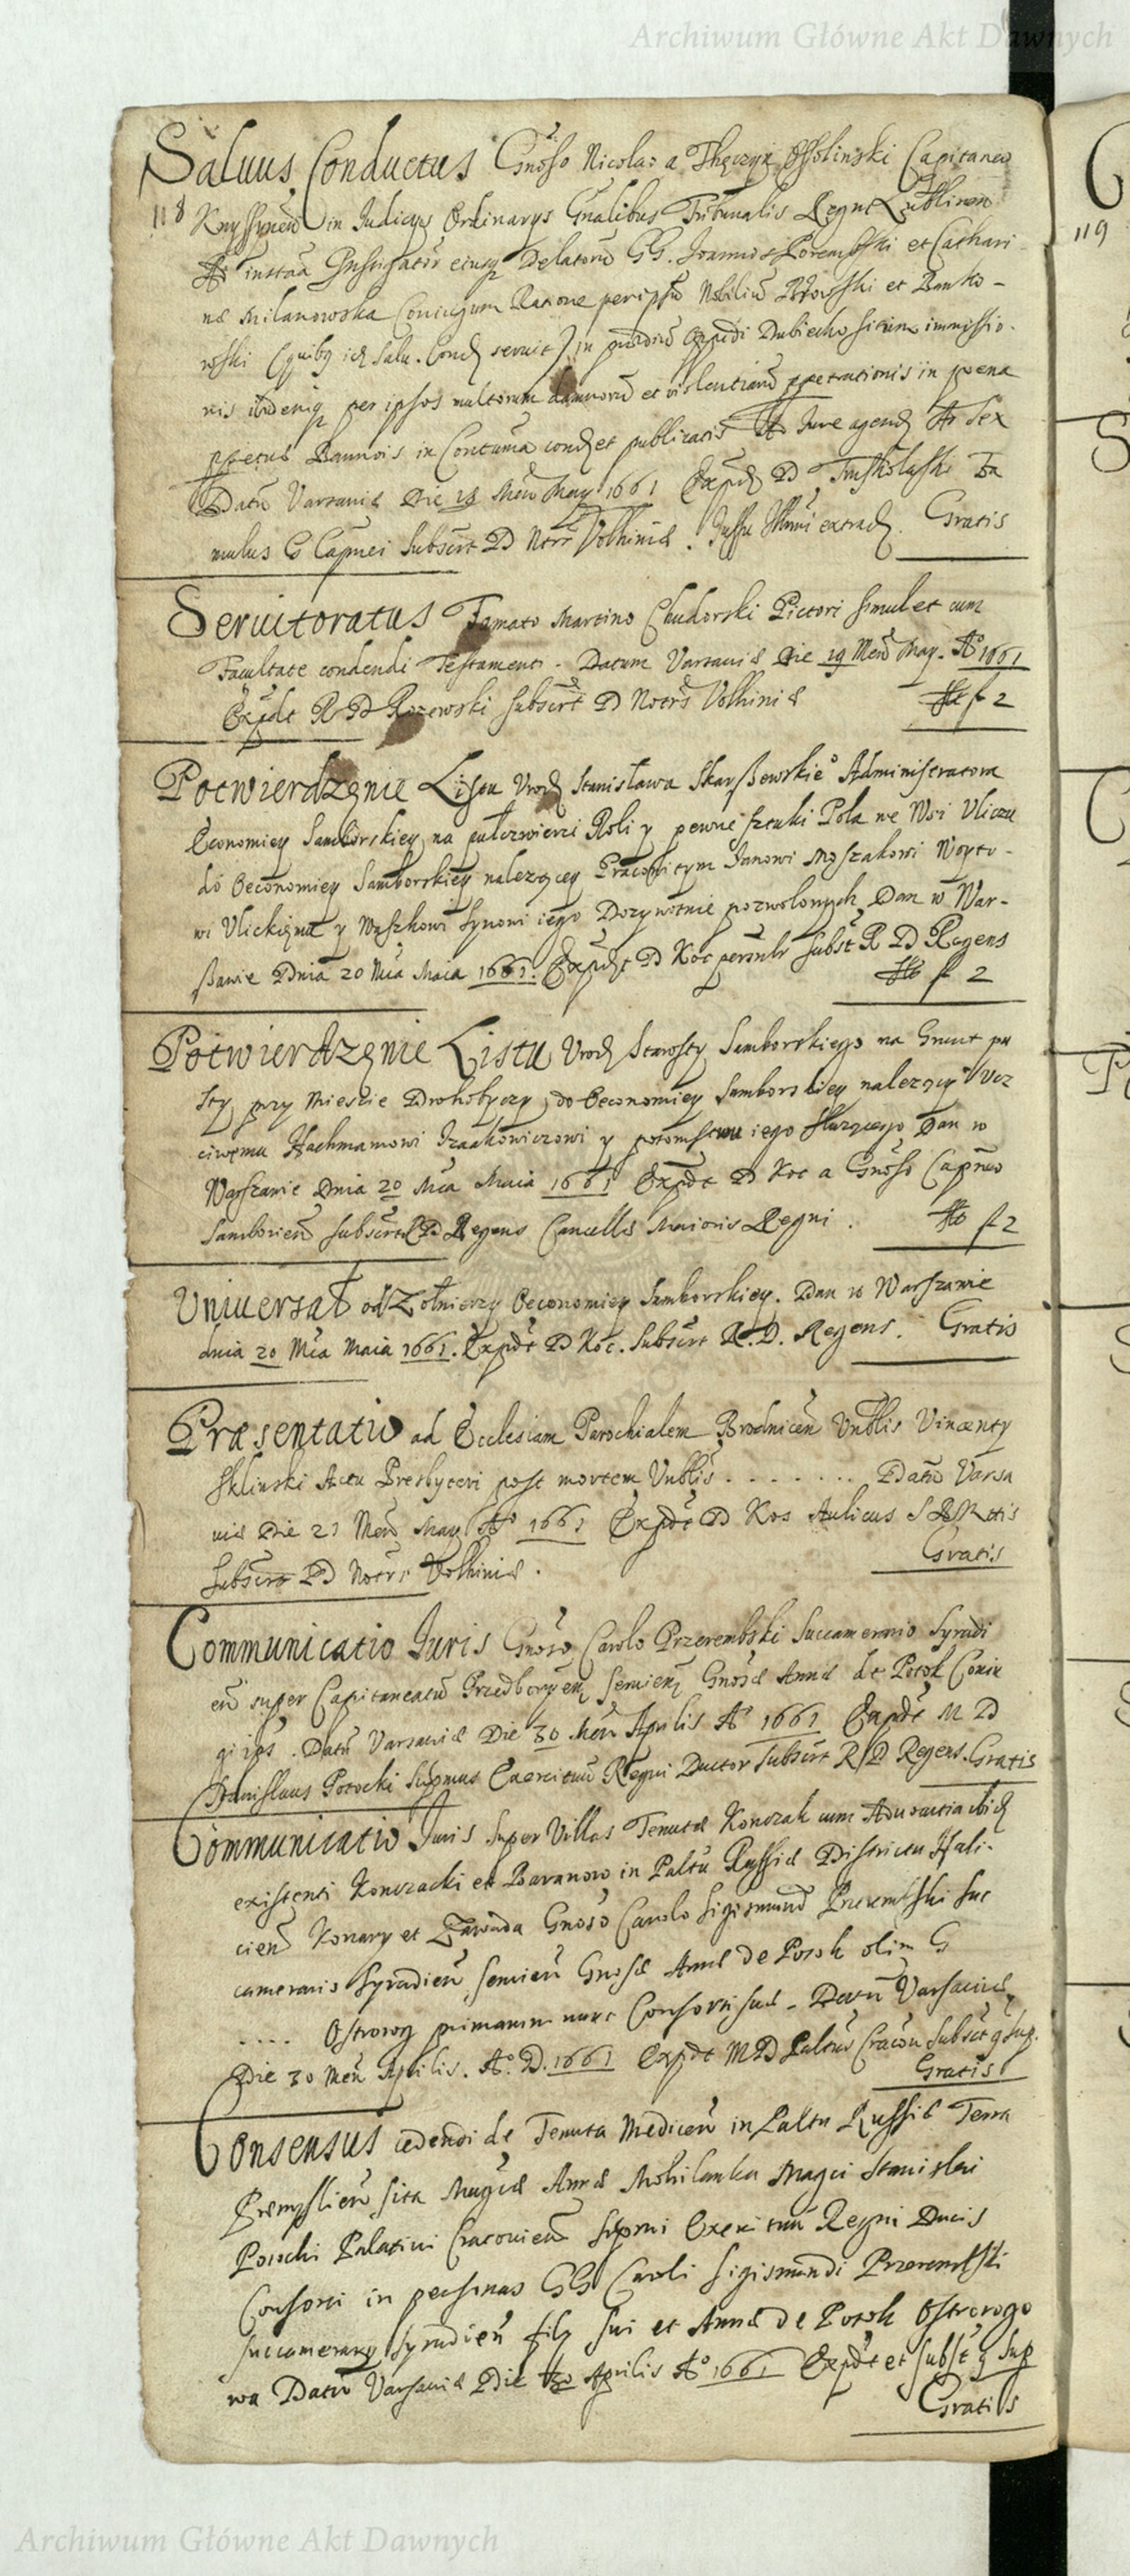 Archiwum Główne Akt Dawnych
Saluus Conductus Gnoso Nicolao a Thęczyn Ossolinski Capitaneo
118
Knyssinen in Iudicys Ordinarys Gnalibus Tribunalis Regni Lublinen
Ad instaa Instigator eiusq Delatoru GG. Ioannis Porembski et Cathari-
nae Milanowska Coniugum Raone per ipsu Nobiliu et Banko-
wski (quibq id Salu. Cond seruit) in Dubiecko situm immissio-
nis ibidemq per ipsos multorum damnoru et violentiaru ppetrationis in poena
ppetuae Bannois in Contuma cond et publicatis Ad Iure agend Ad Sex
Datu Varsauiae Die 18 Men May 1661 Exped D Fa
mulus G Capnei Subscrt D Notrs Volhiniae. Iussu Illmi extrad. Gratis
Seruitoratus Famato Martino Chudorski Pictori simul et cum
Facultate condendi Testamenti. Datum Varsauiae Die 19 Men May. Ao 1661
Expdt R D Rozewski subscrt D Notrs Volhiniae f 2
Potwierdzęnie Listu Urodz Stanisława Skarßewskieo Administratora
Economiey Samborskiey na pułczwierci Roli y pewne sztuki Pola we Wsi Uliczu
do Oeconomiey Samborskiey nalezący Pracowitym Ianowi Moszakowi Woyto-
wi Ulickięmu y Waszkowi Synowi iego Dozywotnie pozwolonych Dan w War-
ßawie Dnia 20 Mca Maia 1661. Expdt D Koc personlr Subst R D Regens
f 2
Potwierdzęnie Listu Urodz Starosty Samborskiego na Grunt pu
sty przy Miescie Drohobyczy do Oeconomiey Samborskiey nalezący Ucz
ciwęmu Hachmamowi Izaakowiczowi y potomstwu iego słuzącego Dan w
Warszawie Dnia 20 Mca Maia 1661 Expdt D Koc a Gnoso Capneo
Samborien subscrt R D Regens Cancellae Maioris Regni. f 2
Uniuersał od Zołnierzy Oeconomiey Samborskiey. Dan w Warszawie
dnia 20 Mca Maia 1661. Expdt D Koc. Subscrt R. D. Regens. Gratis
Præsentatio ad Ecclesiam Parochialem Brodnicen Vnblis Vincenty
Sklinski Actu Presbyteri post mortem Vnblis . . . . . . . Datu Varsa
uiae Die 21 Men May Ao 1661 Expdt D Kos Aulicus S R Mttis
Subscrt D Notrs Volhiniae. Gratis
Communicatio Iuris Gnoso Carolo Przerembski Succamerario Syradi
en super Capitaneatu Przedborzen Semien Gnosae Annae de Potok Coniu
gi ips. Datu Varsauiae Die 30 Men Aprilis Ao 1661 Expdt M D
Stanislaus Potocki Supmus Exercituu Regni Ductor Subscrt R D Regens. Gratis
Communicatio Iuris super Villas Tenutae Konczak cum Aduocatia ibid
existenti Konczacki et Baranow in Paltu Russiae Districtu Hali-
cien Konary et Zawada Gnoso Carolo Sigismund Przerembski suc
camerario Syradien Semien Gnosae Annae de Potok olim G
. . . . Ostrorog primarum nunc Consorti suae. Datu Varsauiae
Die 30 Men Aprilis. Ao. D. 1661 Expdt M D Paltus Cracou Subsct q sup.
Gratis
Consensus cedendi de Tenuta Medicen in Paltu Russiae Terra
Præmyslien sita Magcae Annae Mohilanka Magci Stanislai
Potocki Palatini Cracouien Supmi Exercituu Regni Ducis
Consorti in personas GG Caroli Sigismundi Przerembski
succamerary Syradien fily sui et Annae de Potok Ostrorogo
wa Datu Varsauiae Die 30 Aprilis Ao 1661 Expdt et subst q sup
Gratis
119
Archiwum Główne Akt Dawnych